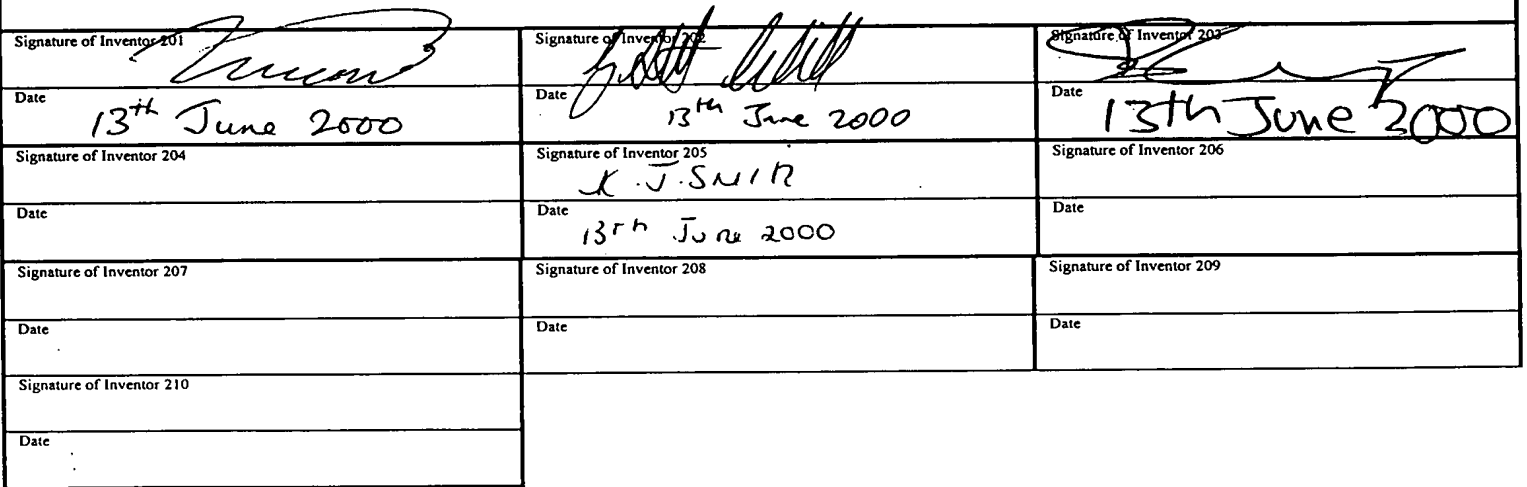 Signature of Inventor 201
Signature of Inventor 202
Signature of Inventor 203
Date
13th June 2000
Date
13th June 2000
Date
13th June 2000
Signature of Inventor 204
Signature of Inventor 205
K.J.
Signature of Inventor 206
Date
Date
13th June 2000
Date
Signature of Inventor 207
Signature of Inventor 208
Signature of Inventor 209
Date
Date
Date
Signature of Inventor 210
Date